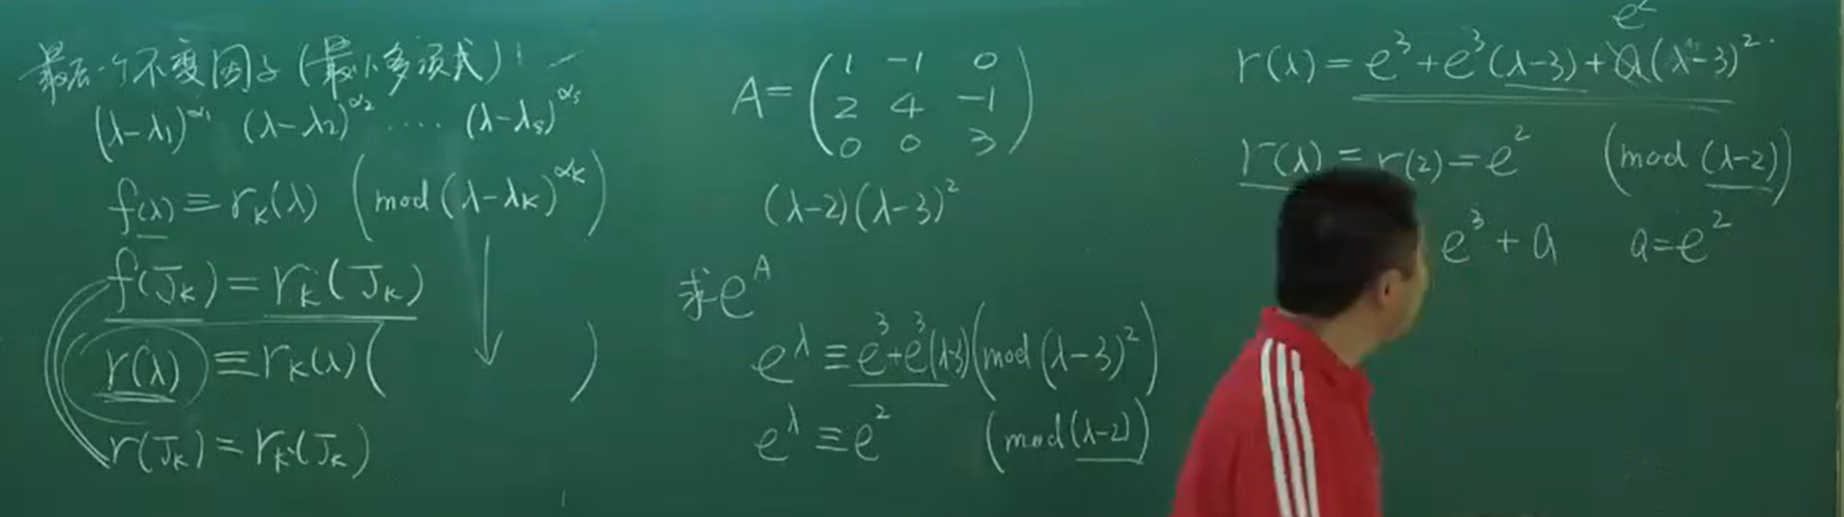 最后一个不变因子(最小多项式)!
(λ-λ₁)^α₁ (λ-λ₂)^α₂ .... (λ-λₛ)^αₛ
f(λ) ≡ rₖ(λ) (mod (λ-λₖ)^αₖ)
f(Jₖ) = rₖ(Jₖ)
r(λ) ≡ rₖ(λ) ( )
r(Jₖ) = rₖ(Jₖ)
A = ( 1 -1 0
2 4 -1
0 0 3 )
(λ-2)(λ-3)²
求 e^A
e^λ ≡ e³+e³(λ-3) (mod (λ-3)²)
e^λ ≡ e² (mod (λ-2))
e²
r(λ) = e³+e³(λ-3)+a(λ-3)².
r(λ) ≡ r(2) = e² (mod (λ-2))
e³+a a=e²